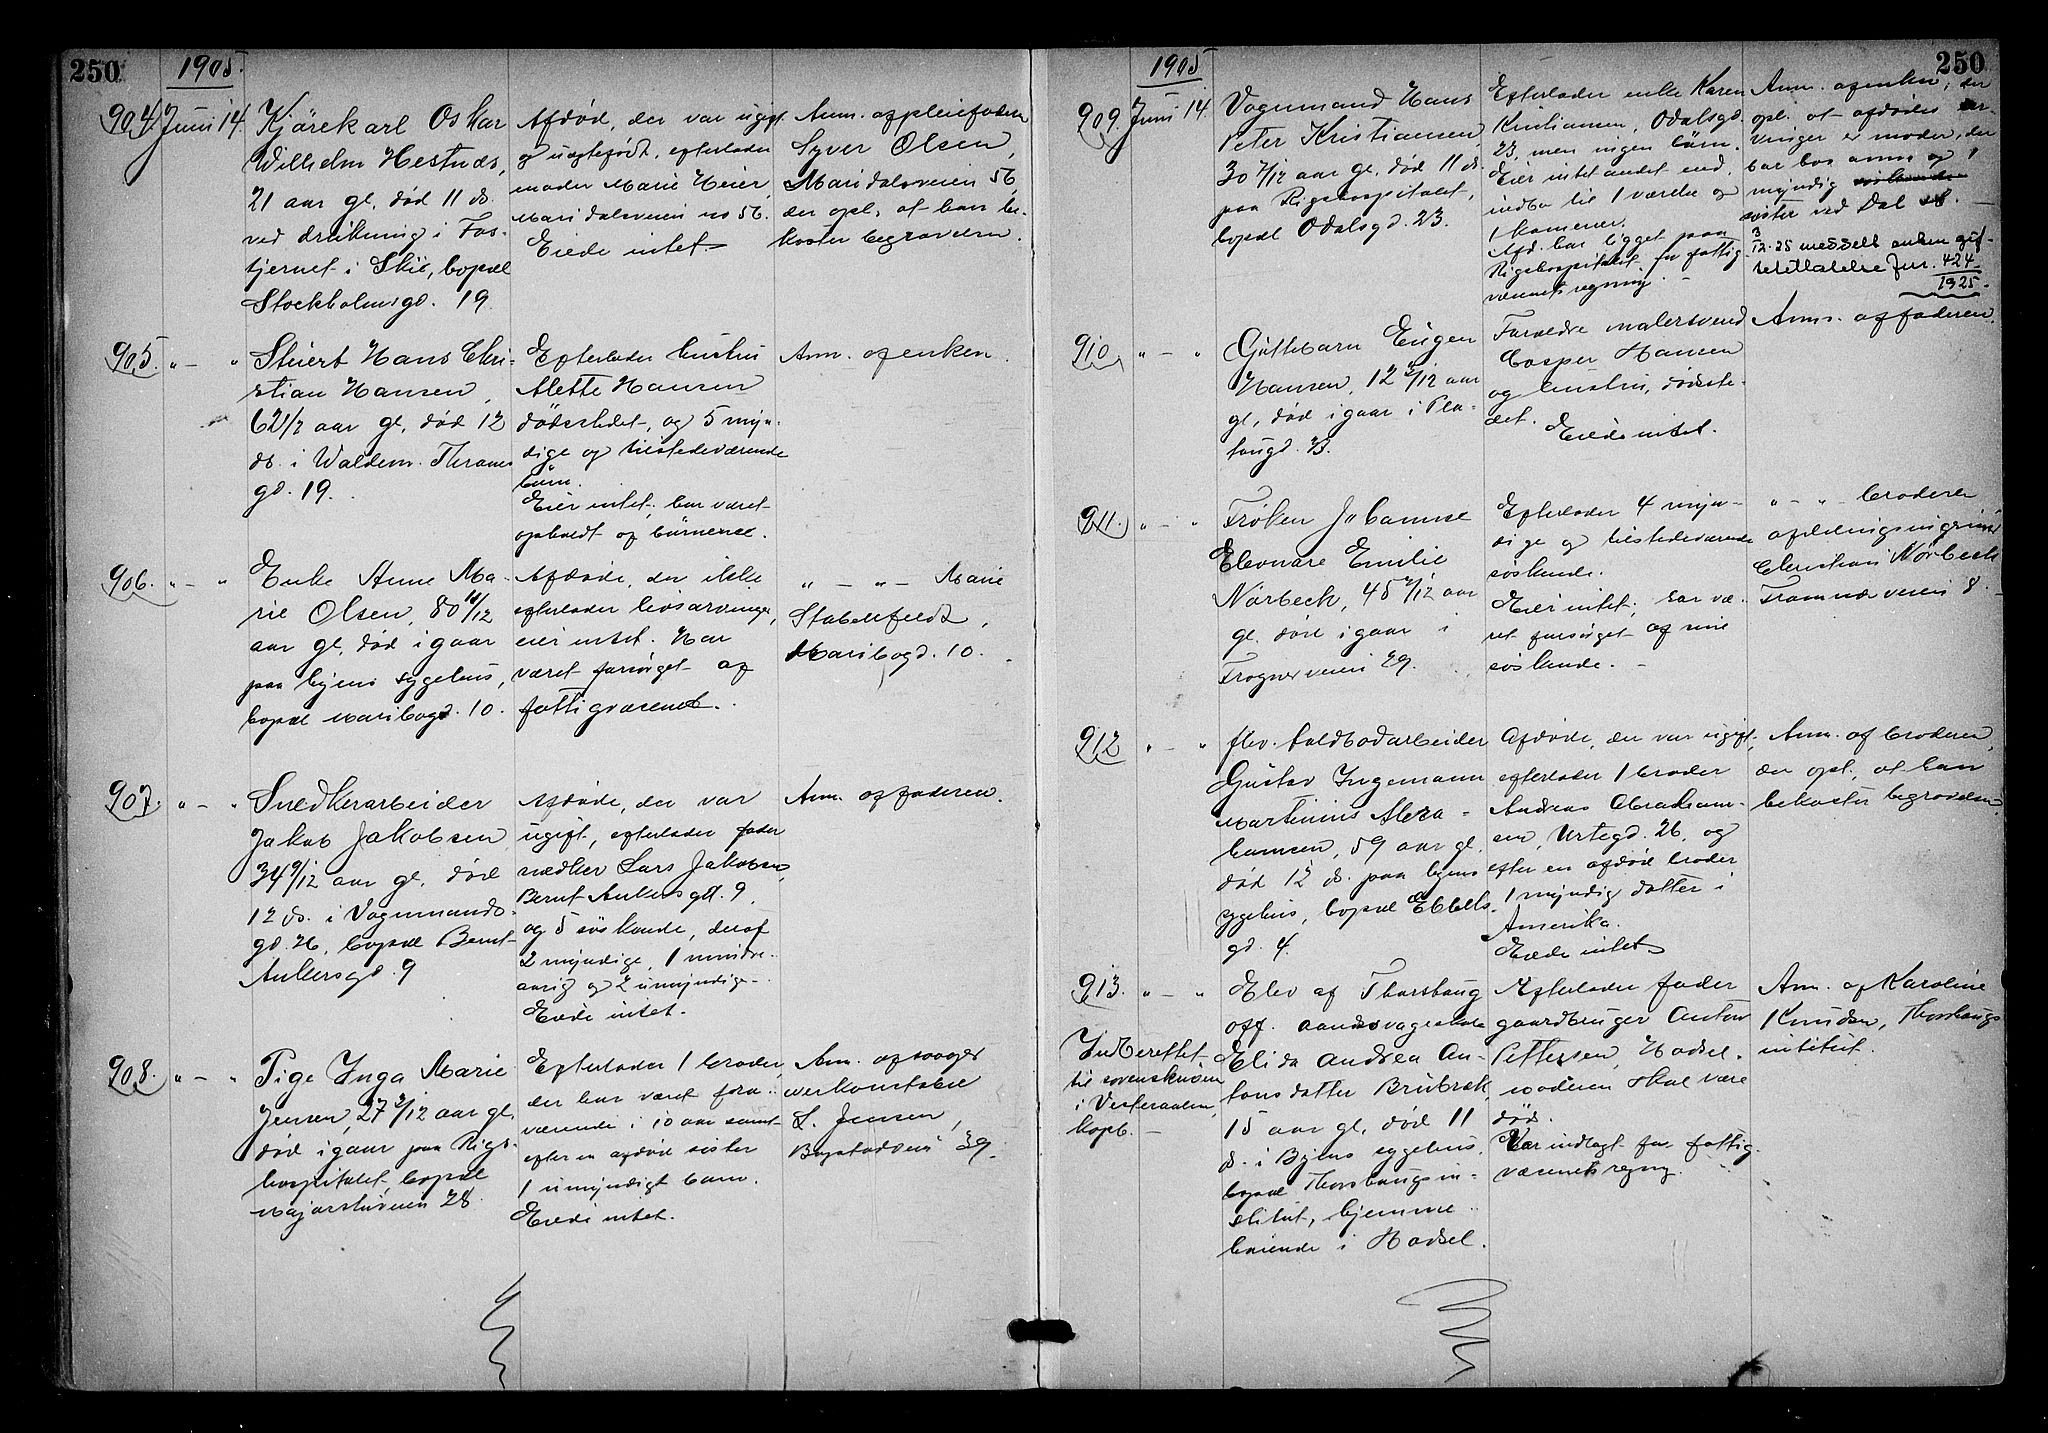 250
1905.
904. Juni 14.
Kjørekarl Oskar
Wilhelm Hestnæs,
21 aar gl. død 11 ds.
ved drukning i Fos-
tjernet i Skie, bopæl
Stockholmsgd. 19.
Afdøde, der var ugift
og uægtefødt, efterlader
moder Marie Heier,
Maridalsveien no 56.
Eiede intet.
Anm. af pleiefaderen
Syver Olsen,
Maridalsveien 56,
der opl. at han be-
koster begravelsen.
905. " — "
Stuert Hans Chri-
stian Hansen,
62 1/2 aar gl. død 12
ds. i Waldem. Thranes
gd. 19.
Efterlader hustru
Alette Hansen
dødsstedet, og 5 myn-
dige og tilstedeværende
børn.
Eier intet, har været
opholdt af børnene.
Anm. af enken.
906. " — "
Enke Anne Ma-
rie Olsen, 80 11/12
aar gl. død igaar
paa byens sygehus,
bopæl Maribogd. 10.
Afdøde, der ikke
efterlader livsarvinger,
eier intet. Har
været forsørget af
fattigvæsenet.
" — " — Marie
Stabelfeldt,
Maribogd. 10.
907. " — "
Snedkerarbeider
Jakob Jakobsen,
34 9/12 aar gl. død
12 ds. i Vognmands-
gd. 26, bopæl Bernt
Ankersgd. 9
Afdøde, der var
ugift, efterlader fader
snedker Lars Jakobsen,
Bernt Ankersgd. 9,
og 5 søskende, deraf
2 myndige, 1 mindre-
aarig og 2 umyndige.
Eiede intet.
Anm. af faderen.
908. " — "
Pige Inga Marie
Jensen, 27 3/12 aar gl.
død igaar paa Rigs-
hospitalet, bopæl
Majorstuveien 28.
Efterlader 1 broder,
der har været fra-
værende i 10 aar samt
efter en afdød søster
1 umyndigt barn.
Eiede intet.
Anm. af svoger
overkonstabel
L. Jensen,
Bogstadveien 39.
1905
250
909. Juni 14.
Vognmand Hans
Peter Kristiansen,
30 7/12 aar gl. død 11 ds.
paa Rigshospitalet,
bopæl Odalsgd. 23.
Efterlader enke Karen
Kristiansen, Odalsgd.
23, men ingen børn.
Eier intet andet end
indbo til 1 værelse og
1 kammer.
Afd. har ligget paa
Rigshospitalet for fattig-
væsenets regning.
Anm. af enken, der
opl. at afdødes ar-
vinger er moder, der
bor hos anm. og 1
myndig
søster ved Dal st.
3/12-25 meddelt enken
Jnr. 424
1925.
910. " — "
Guttebarn Eugen
Hansen, 12 2/12 aar
gl. død igaar i Pla-
tougd.
Forældre malersvend
Casper Hansen
og hustru, dødsste-
det.
Eiede intet.
Anm. af faderen.
911. " — "
Frøken Johanne
Eleonore Emilie
Nørbeck, 45 2/12 aar
gl. død igaar i
Frognerveien 29.
Efterlader 4 myn-
dige og tilstedeværende
søskende.
Eier intet; har væ-
ret forsørget af sine
søskende.
" — " — broderen
afdelingsingeniør
Christian Nørbeck
Framnæsveien 8.
912 " — "
fhv. toldbodarbeider
Gustav Ingemann
Martinius Abra-
hamsen, 59 aar gl.
død 12 ds. paa byens
sygehus, bopæl Ebbells
gd. 4.
Afdøde, der var ugift,
efterlader 1 broder
Andreas Abraham-
sen, Urtegd. 26, og
efter en afdød broder
1 myndig datter i
Amerika.
Eiede intet
Anm. af broderen,
der opl., at han
bekoster begravelsen.
913. " — "
Indberettet
til sorenskriveren
i Vesteraalen,
kopb. —
Elev af Thorshaug
off. aandssvageskole
Elida Andrea An-
tonsdatter Brubræk,
15 aar gl. død 11
ds. i Byens sygehus,
bopæl Thorshaugsin-
stitut, hjemme-
hørende i Hadsel.
Efterlader fader
gaardbruger Anton
Pettersen, Hadsel.
moderen skal være
død.
Var indlagt for fattig-
væsenets regng.
Anm. af Karoline
Knudsen, Thorshaugs
intitut.